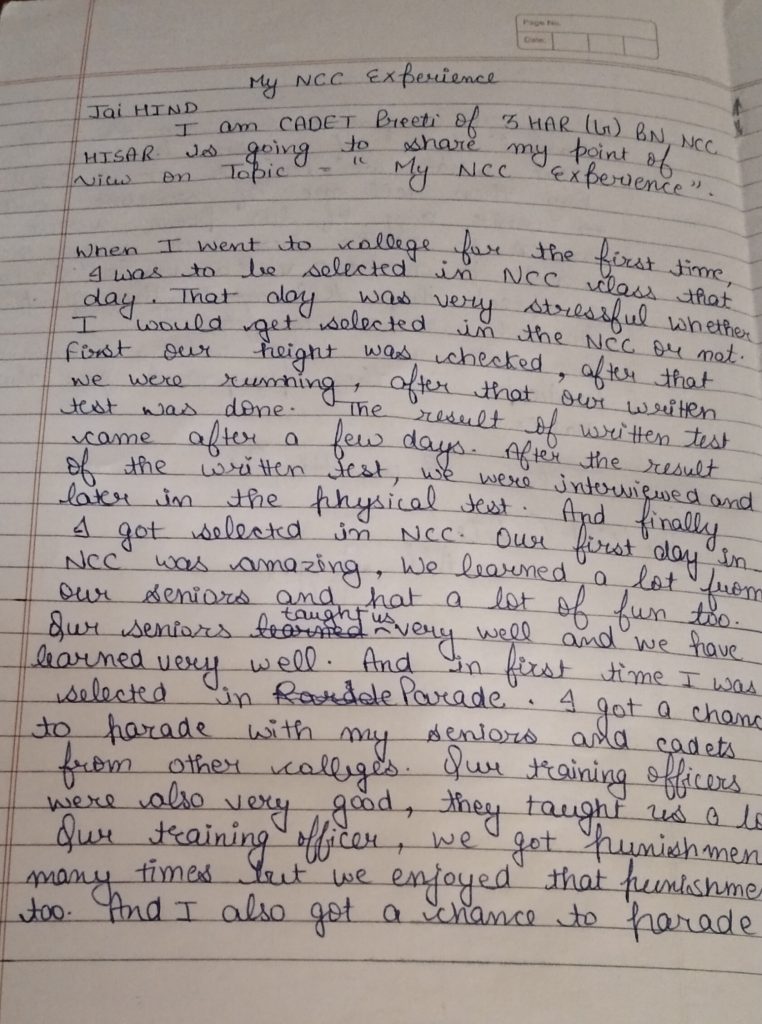 Page No.
Date:
My NCC Experience
Jai HIND
I am CADET Preeti of 3 HAR (G) BN, NCC
HISAR is going to share my point of
view on Topic - " My NCC Experience".
When I went to college for the first time,
I was to be selected in NCC class that
day. That day was very stressful whether
I would get selected in the NCC or not.
First our height was checked, after that
we were running, after that our written
test was done. The result of written test
came after a few days. After the result
of the written test, we were interviewed and
later in the physical test. And finally
I got selected in NCC. Our first day in
NCC was amazing, we learned a lot from
our seniors and hat a lot of fun too.
Our seniors learned taught us very well and we have
learned very well. And in first time I was
selected in Parade. I got a chanc
to parade with my seniors and cadets
from other colleges. Our training officers
were also very good, they taught us a lo
Our training officer, we got punishmen
many times but we enjoyed that punishme
too. And I also got a chance to parade